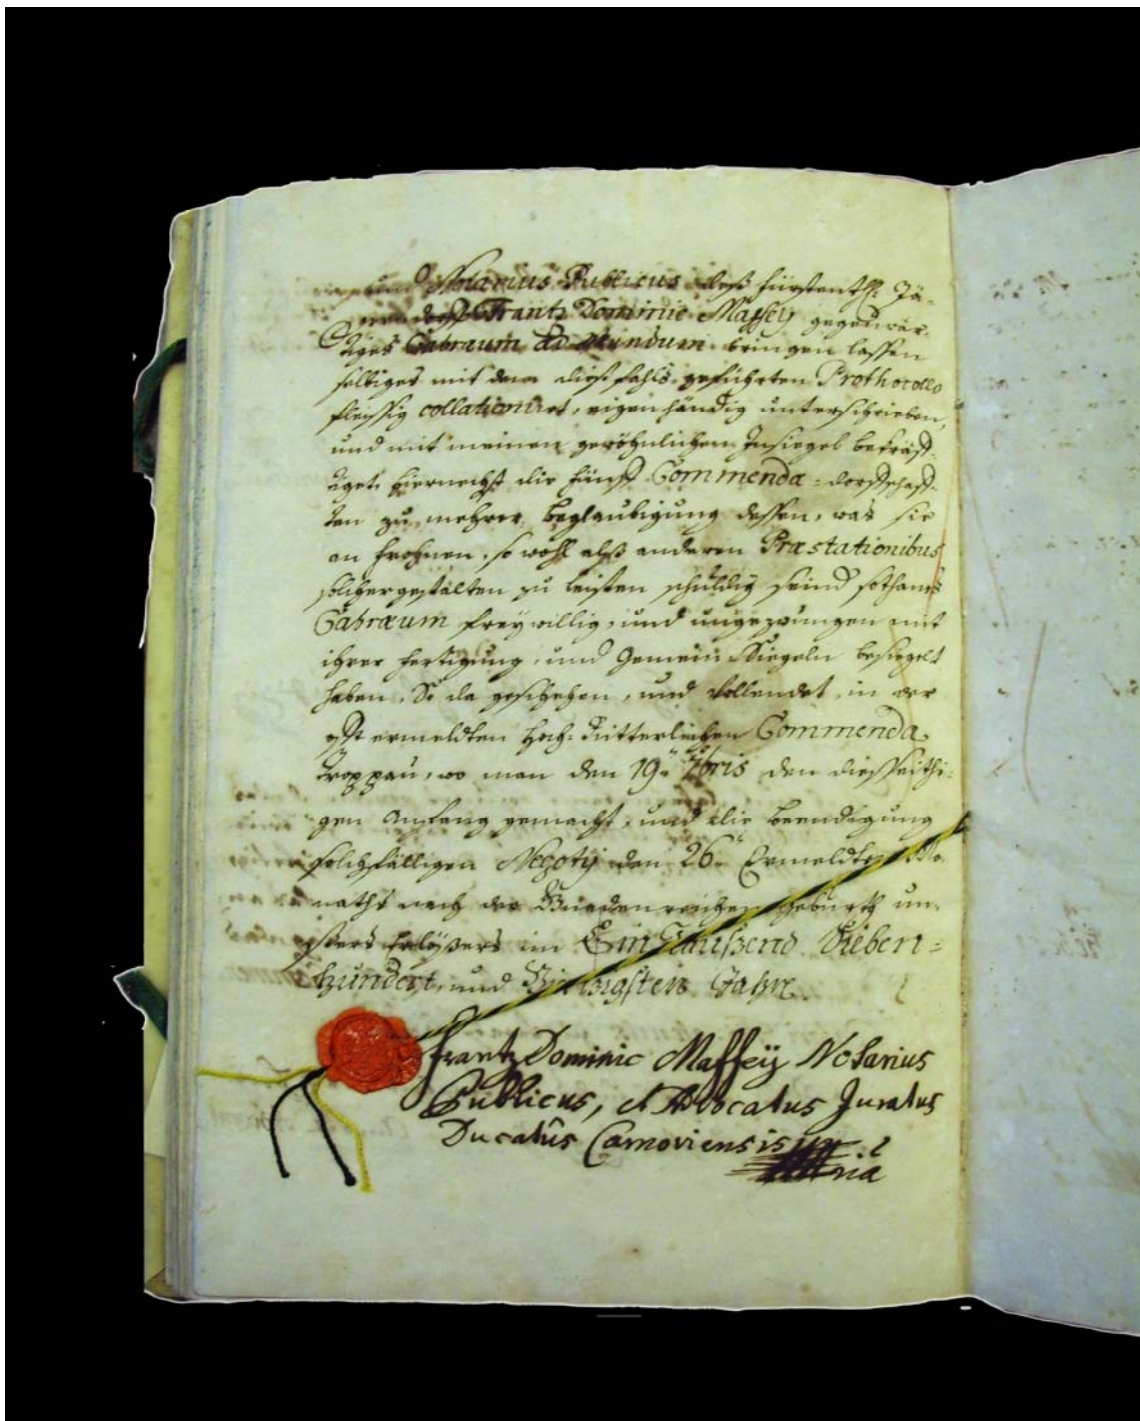 Notarius Publicus deß fürstenth: Jä-
Frantz Dominic Maffeÿ gegenwär-
tiges Gabraeum ad Mundum bringen lassen
selbiges mit dem dießfahls geführten Prothocollo
fleissig collationiret, eigenhändig unterschrieben,
und mit meinen gewöhnlichen Insiegel bekräff-
tiget. hiernechst die fünff Commenda-dorffschaff-
ten zu mehrer beglaubigung dessen, was sie
an frohnen, so wohl alß anderen Præstationibus
solchergestalten zu leisten schuldig seind sothanes
frey willig, und ungezwungen mit
ihrer fertigung, und Gemein Siegeln besiegelt
haben. So da geschehen, und Vollendet, in der
offt ermeldten hoch-Ritterlichen Commenda
Troppau, wo man den 19. 7bris den diesseithi-
gen Anfang gemacht, und die beendigung
Negotÿ den 26. Ermeldten Mo-
naths nach der Gnadenreichen geburth un-
sers Erlösers im Ein Taußend Sieben-
hundert, und Jahre.
Frantz Dominic Maffeÿ Notarius
Publicus, et Advocatus Juratus
Ducatûs Carnoviensis